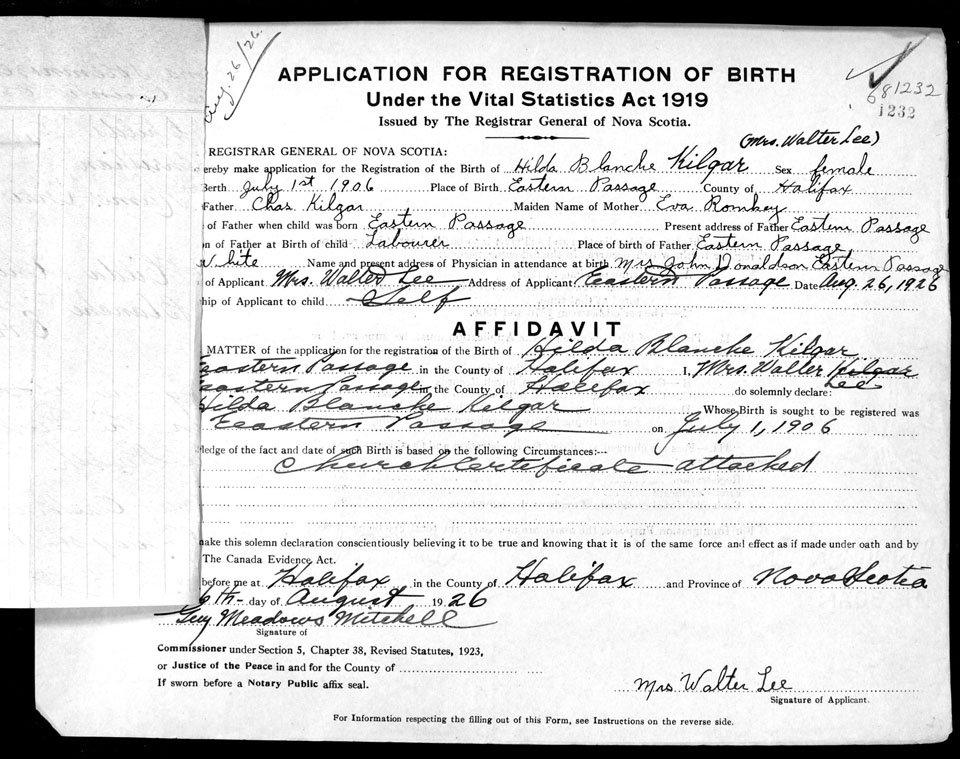 Aug. 26/26.
APPLICATION FOR REGISTRATION OF BIRTH
681232
Under the Vital Statistics Act 1919
1232
Issued by The Registrar General of Nova Scotia.
(Mrs. Walter Lee)
REGISTRAR GENERAL OF NOVA SCOTIA:
ereby make application for the Registration of the Birth of Hilda Blanche Kilgar Sex female
Berth July 1st 1906 Place of Birth Eastern Passage County of Halifax
Father Chas. Kilgar Maiden Name of Mother Eva Romkey
of Father when child was born Eastern Passage Present address of Father Eastern Passage
n of Father at Birth of child Labourer Place of birth of Father Eastern Passage
White Name and present address of Physician in attendance at birth Mrs John Donaldson Eastern Passage
of Applicant Mrs. Walter Lee Address of Applicant Eastern Passage Date Aug. 26, 1926
hip of Applicant to child Self
AFFIDAVIT
MATTER of the application for the registration of the Birth of Hilda Blanche Kilgar
Eastern Passage in the County of Halifax I, Mrs. Walter Kilgar Lee
Eastern Passage in the County of Halifax do solemnly declare:
Hilda Blanche Kilgar Whose Birth is sought to be registered was
Eeastern Passage on July 1, 1906
ledge of the fact and date of such Birth is based on the following Circumstances:—
Church Certificate attached
make this solemn declaration conscientiously believing it to be true and knowing that it is of the same force and effect as if made under oath and by
The Canada Evidence Act.
before me at Halifax in the County of Halifax and Province of Nova Scotia
6th day of August 1926
Guy Meadows Mitchell
Signature of
Commissioner under Section 5, Chapter 38, Revised Statutes, 1923,
or Justice of the Peace in and for the County of
If sworn before a Notary Public affix seal.
Mrs Walter Lee
Signature of Applicant.
For Information respecting the filling out of this Form, see Instructions on the reverse side.